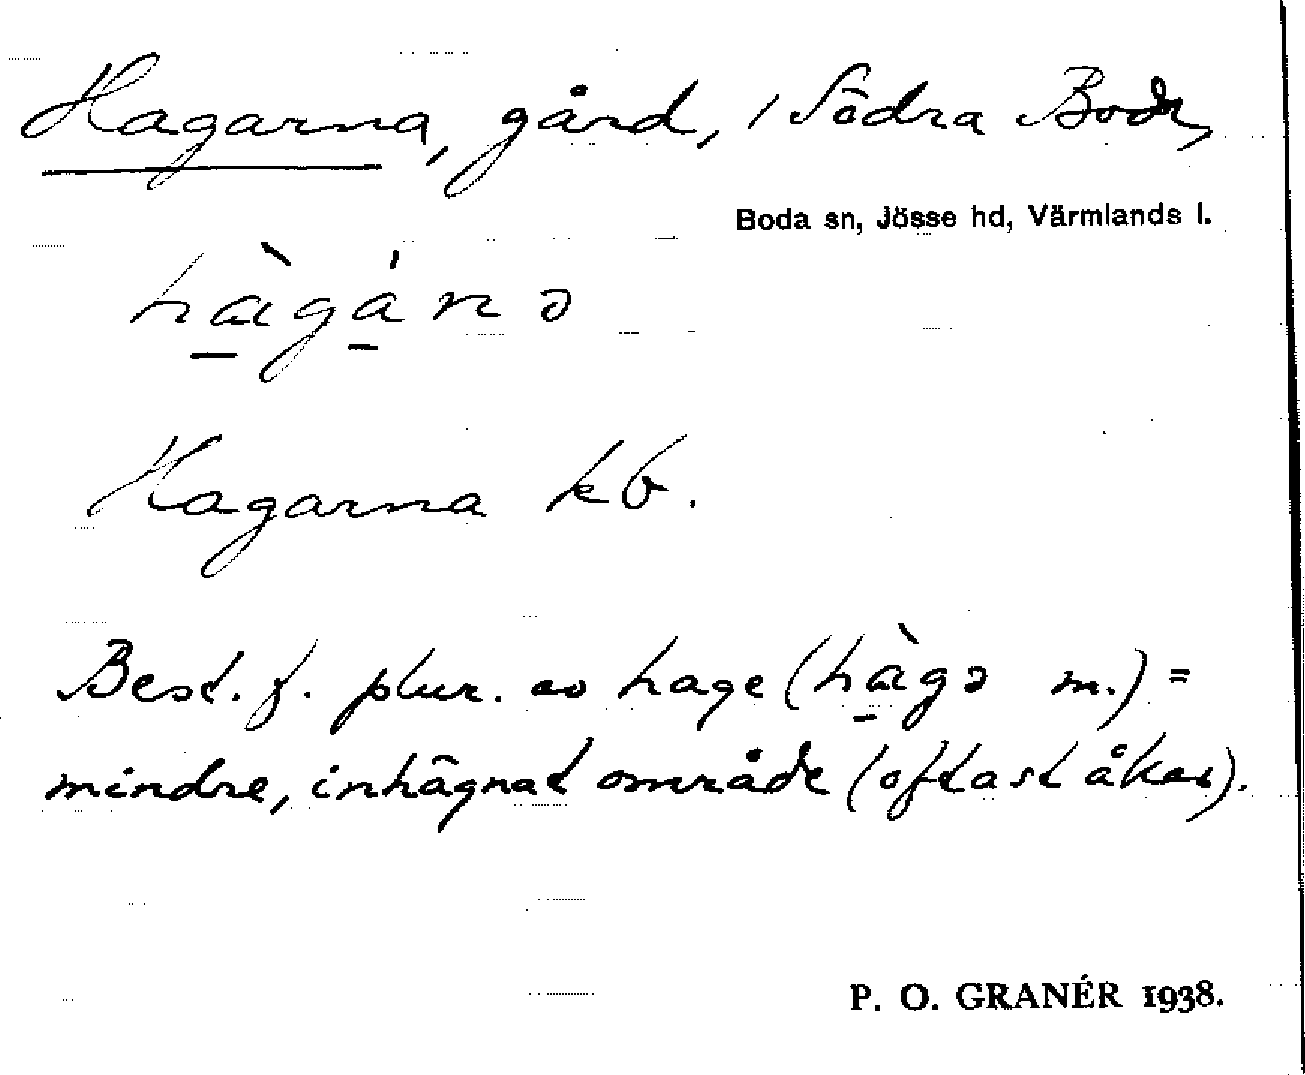 Hagarna, gård, i Södra Boda,
Boda sn, Jösse hd, Värmlands l.
hàgánə
Hagarna kb.
Best. f. plur. av hage (hàgə m.) =
mindre, inhägnat område (oftast åker).
P. O. GRANÉR 1938.